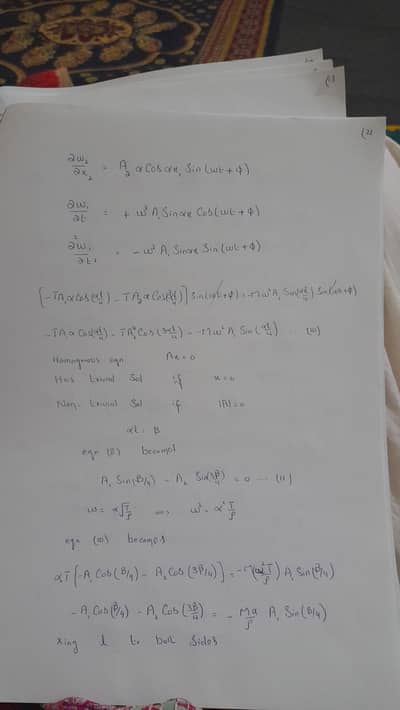 (2)
∂w₂/∂x₂ = A₂ α Cos αx₂ Sin (ωt + φ)
∂w₁/∂t = + ω² A₁ Sin αx Cos (ωt + φ)
∂²w₁/∂t² = - ω² A₁ Sin αx Sin (ωt + φ)
[-TA₁α Cos(αl/4) - TA₂α Cos(3αl/4)] Sin(ωt + φ) = -Mω² A₁ Sin(αl/4) Sin(ωt + φ)
-TA₁α Cos(αl/4) - TA₂α Cos(3αl/4) = -Mω² A₁ Sin(αl/4) ... (10)
Homogenous eqn Ax = 0
Has trivial Sol if x = 0
Non-trivial Sol if |A| = 0
αl = β
eqn (8) becomes
A₁ Sin(β/4) - A₂ Sin(3β/4) = 0 --- (11)
ω = α√(T/ρ) ⇒ ω² = α² T/ρ
eqn (10) becomes
αT[-A₁ Cos(β/4) - A₂ Cos(3β/4)] = -M(α² T/ρ) A₁ Sin(β/4)
-A₁ Cos(β/4) - A₂ Cos(3β/4) = - Mα/ρ A₁ Sin(β/4)
xing l to both sides